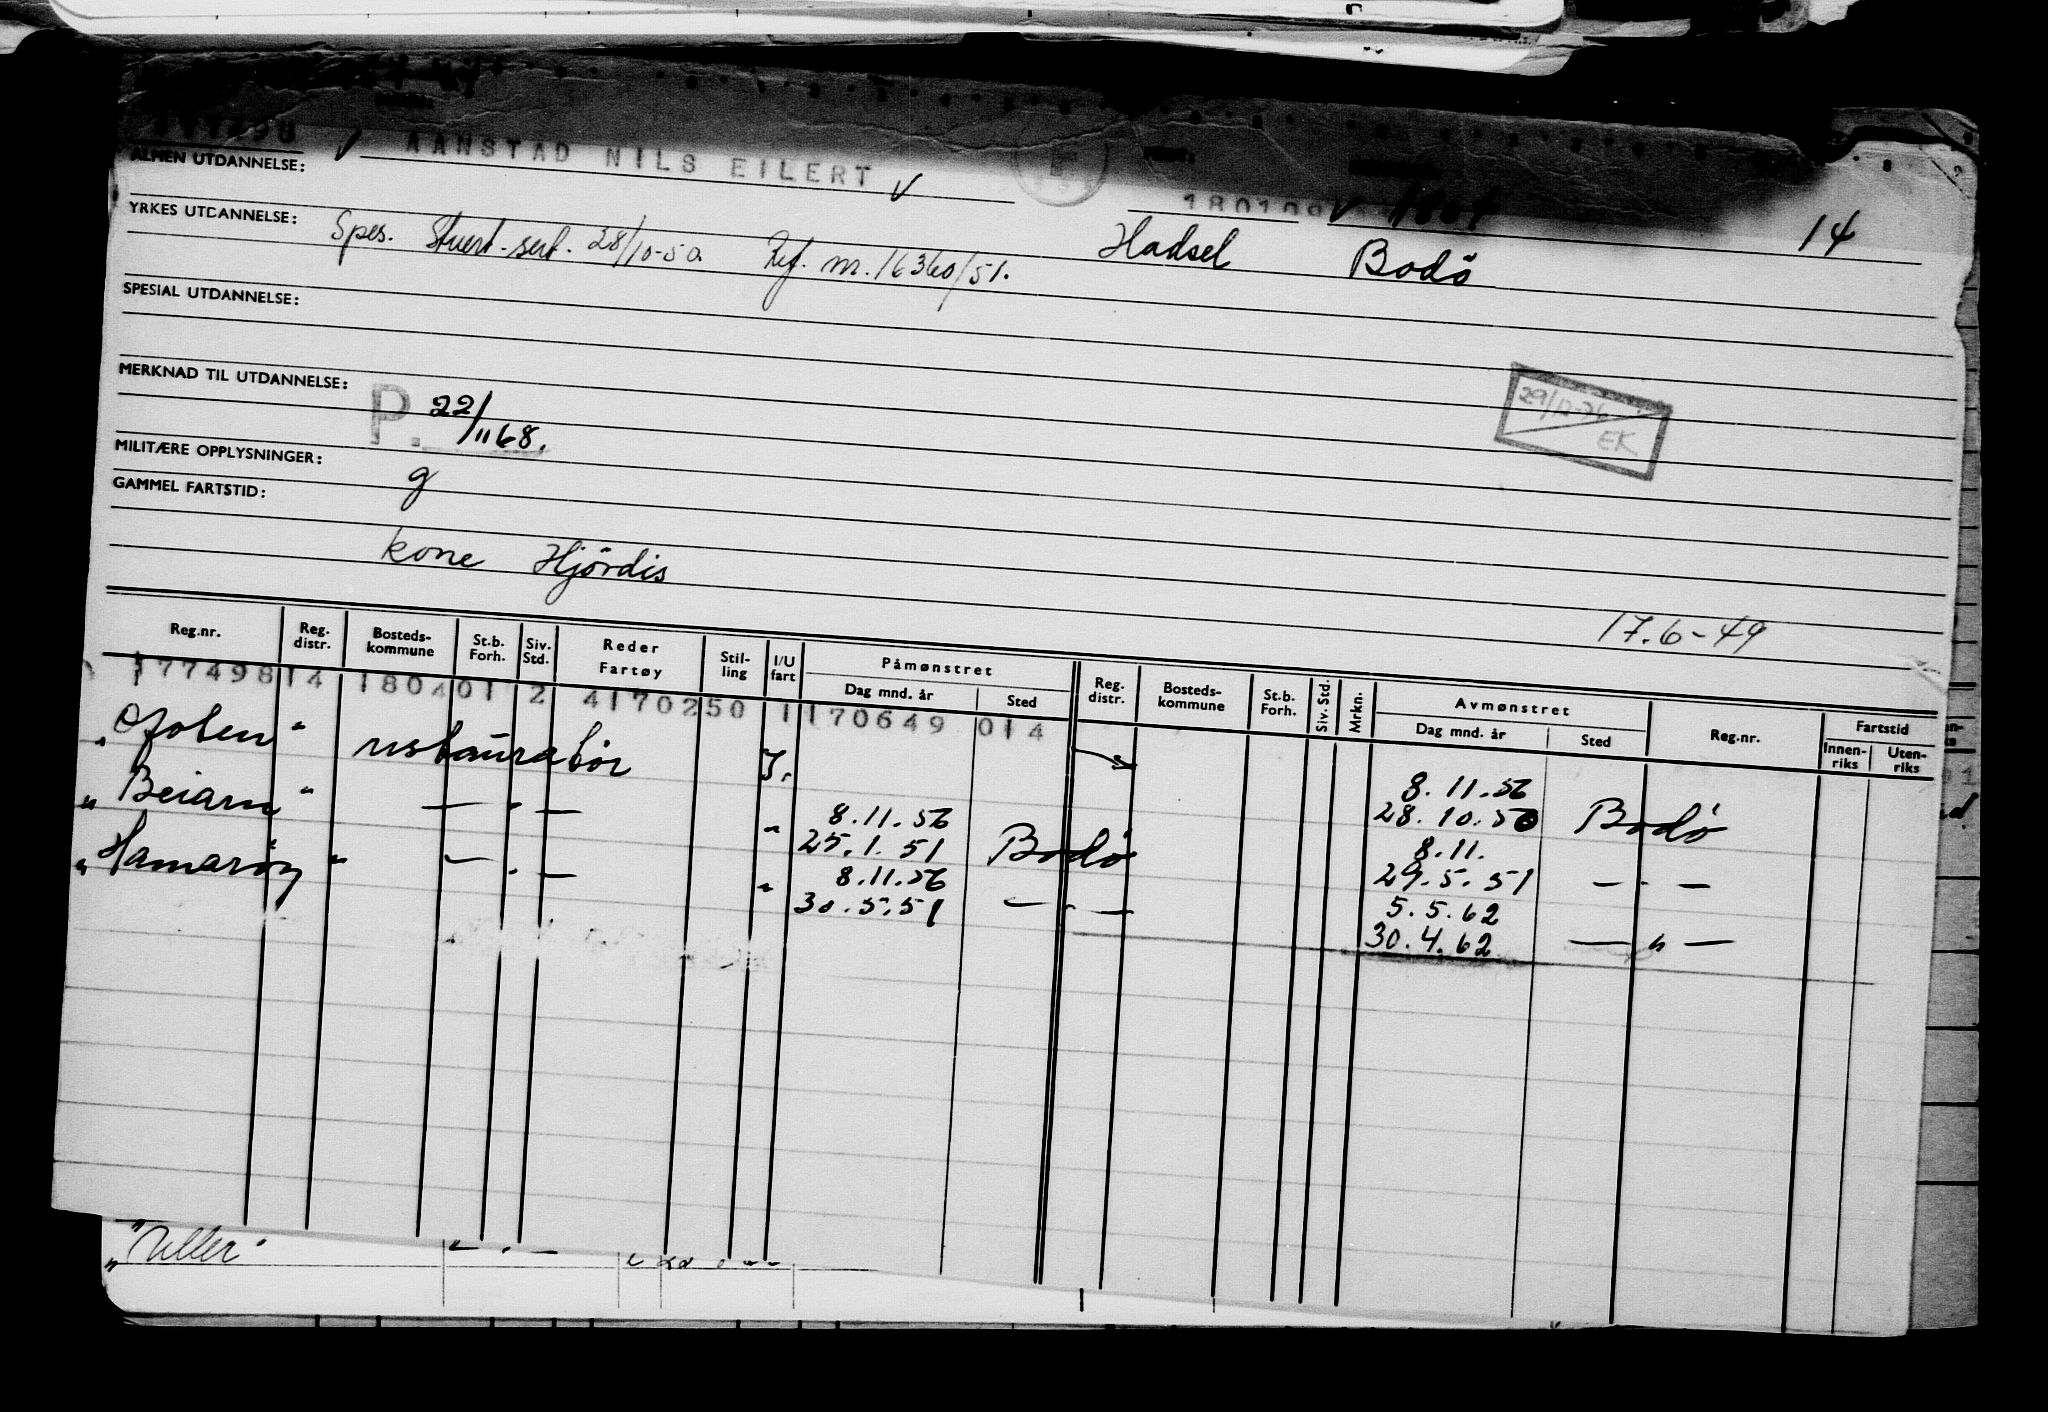 AANSTAD NILS EILERT
ALMEN UTDANNELSE:
180109
14
YRKES UTDANNELSE: Spes. Stuert-sert. 28/10-50. Ref. nr. 16360/51. Hadsel Bodö
SPESIAL UTDANNELSE:
MERKNAD TIL UTDANNELSE:
P. 22/11 68.
29/12-76 EK
MILITÆRE OPPLYSNINGER: g
GAMMEL FARTSTID:
kone Hjördis
17.6-49
Reg.nr. Reg. distr. Bosteds-kommune St.b. Forh. Siv. Std. Reder Fartøy Stil-ling I/U fart Påmønstret Dag mnd. år Sted Reg. distr. Bosteds-kommune St.b. Forh. Siv. Std. Mrkn. Avmønstret Dag mnd. år Sted Reg.nr. Fartstid Innen-riks Uten-riks
177498 14 1804 01 2 4170250 1 170649 014
"Ofoten" restauratör I. 8.11.56
28.10.50 Bodö
"Beiarn" — " — " 8.11.56 8.11.
25.1.51 Bodö 29.5.51 — " —
"Hamaröy" — " — " 8.11.56 5.5.62
30.5.51 — " — 30.4.62 — " —
— " —